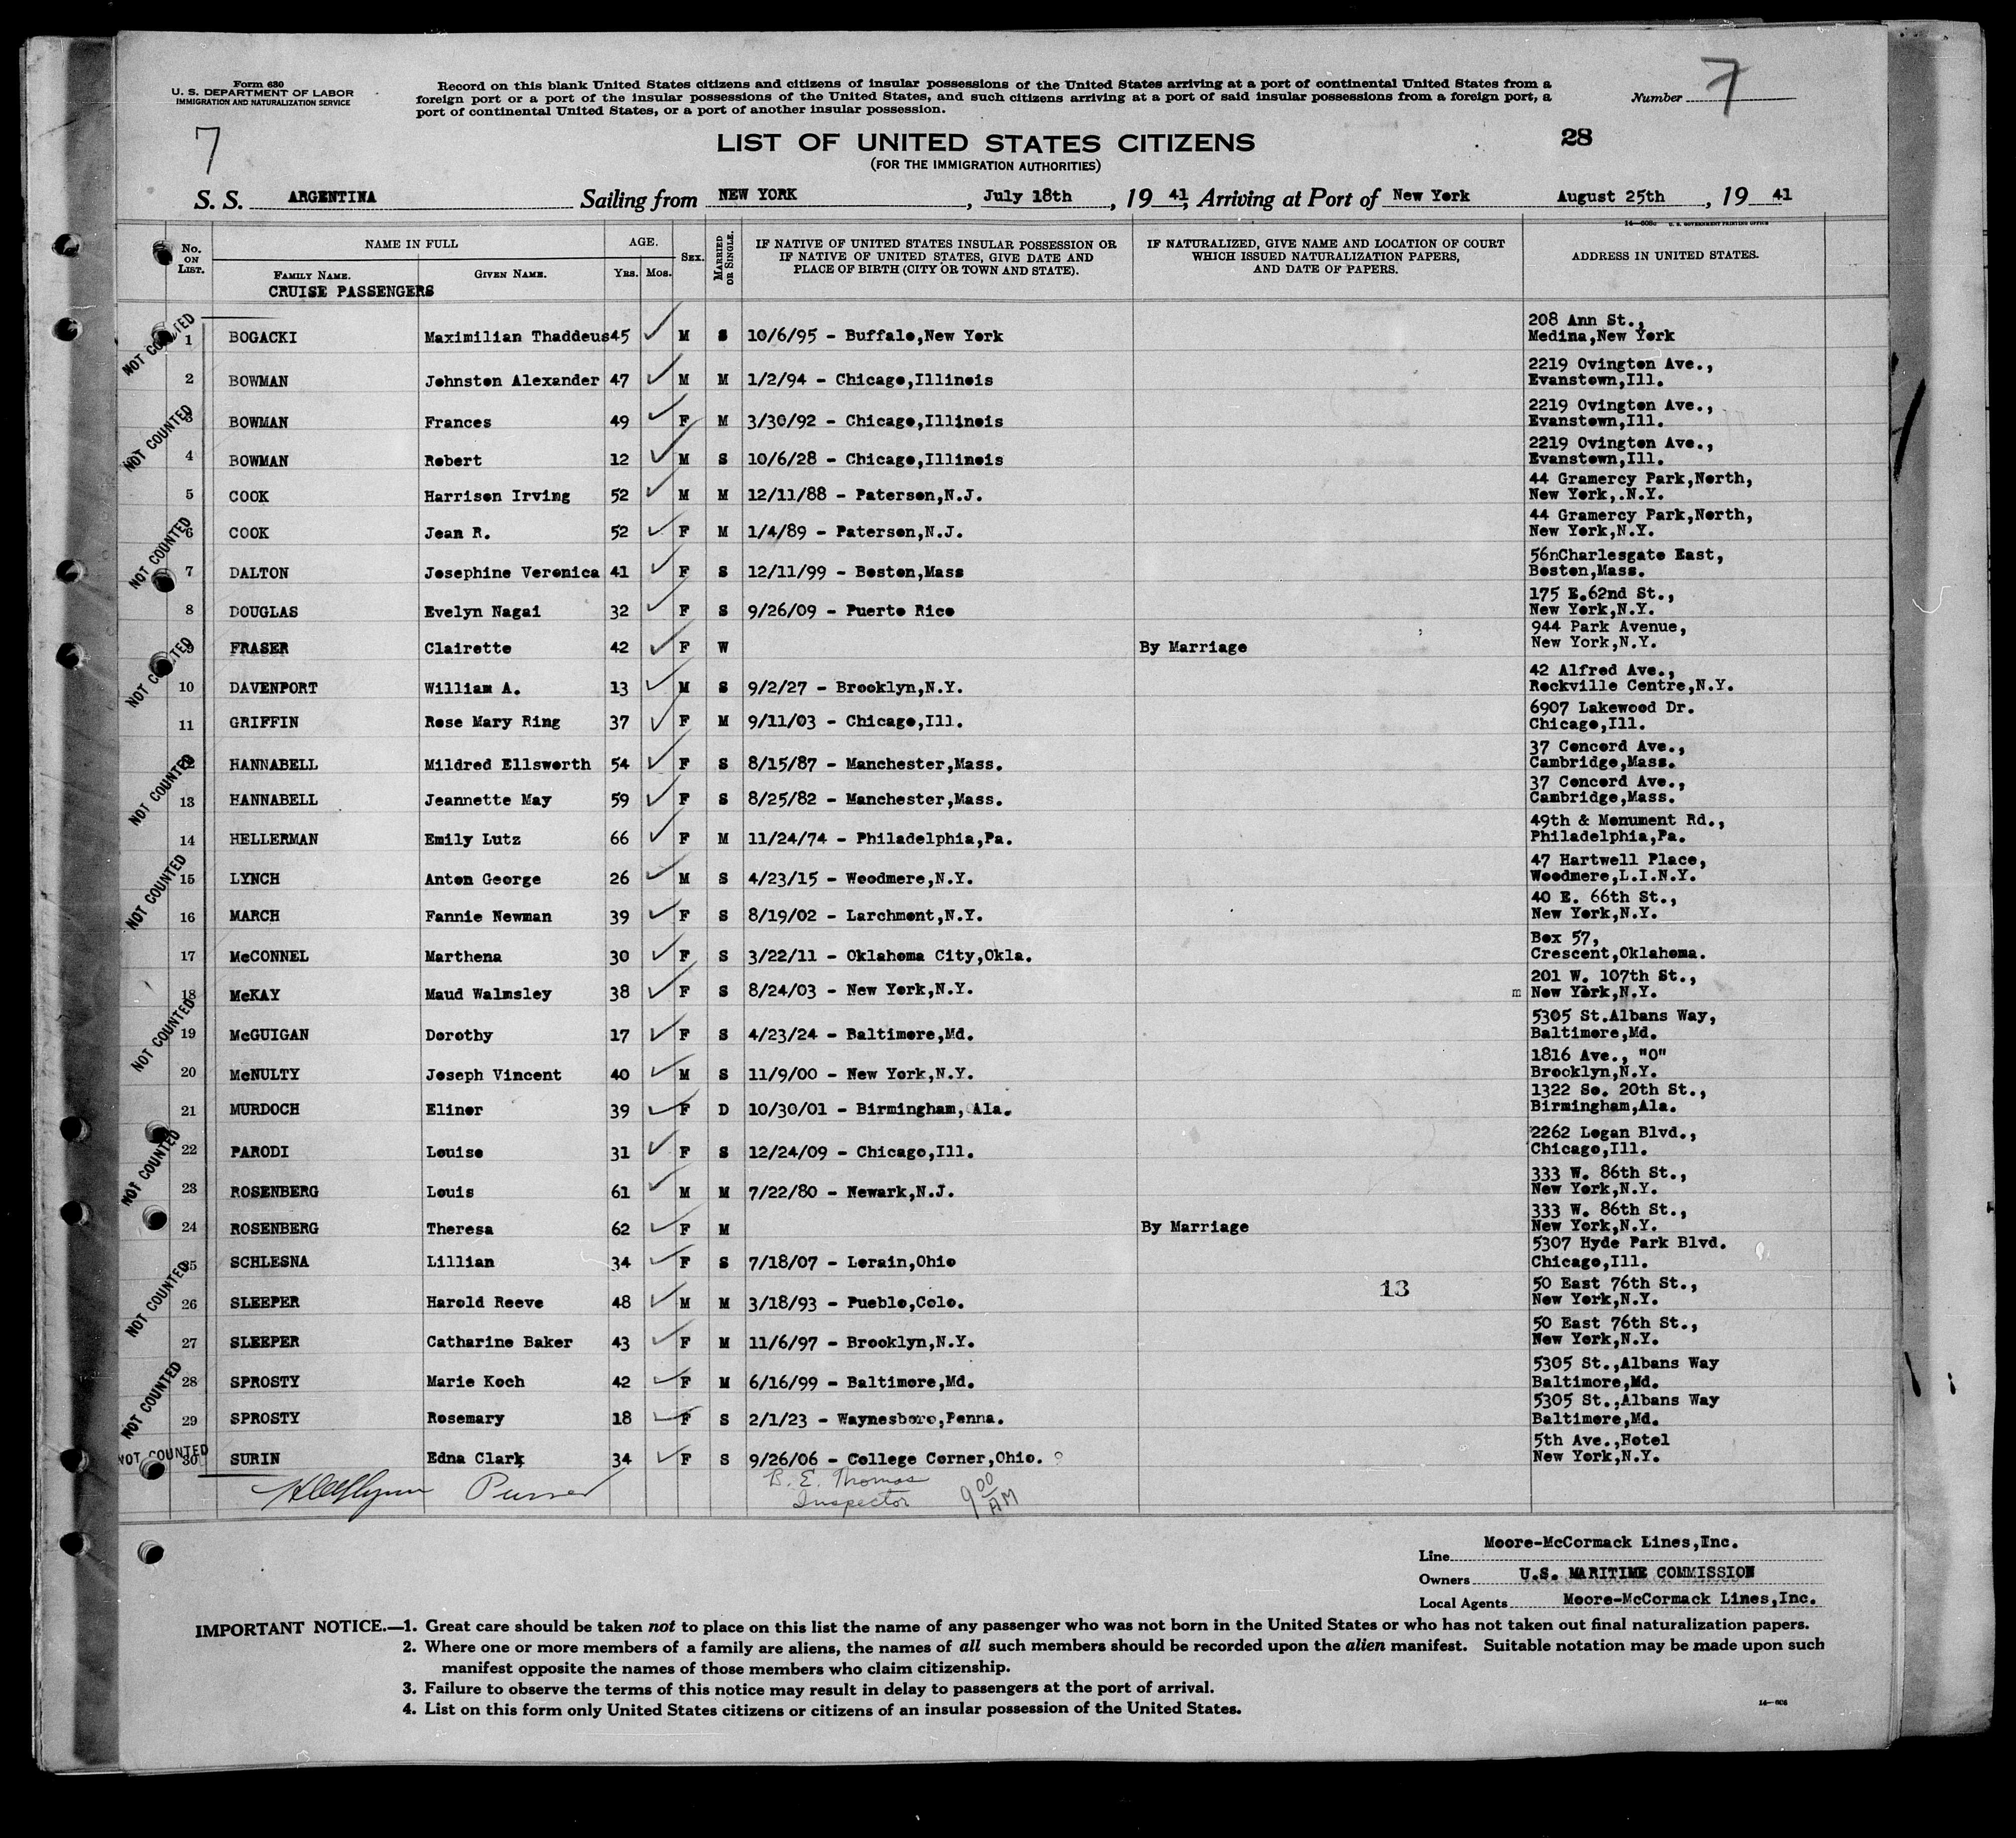 Form 630
U. S. DEPARTMENT OF LABOR
IMMIGRATION AND NATURALIZATION SERVICE
Record on this blank United States citizens and citizens of insular possessions of the United States arriving at a port of continental United States from a
foreign port or a port of the insular possessions of the United States, and such citizens arriving at a port of said insular possessions from a foreign port, a
port of continental United States, or a port of another insular possession.
Number 7
7
LIST OF UNITED STATES CITIZENS
28
(FOR THE IMMIGRATION AUTHORITIES)
S. S. ARGENTINA Sailing from NEW YORK, July 18th, 19 41, Arriving at Port of New York August 25th, 19 41
14—608c U. S. GOVERNMENT PRINTING OFFICE
No. ON LIST. NAME IN FULL FAMILY NAME. GIVEN NAME. AGE. YRS. MOS. SEX. MARRIED OR SINGLE. IF NATIVE OF UNITED STATES INSULAR POSSESSION OR IF NATIVE OF UNITED STATES, GIVE DATE AND PLACE OF BIRTH (CITY OR TOWN AND STATE). IF NATURALIZED, GIVE NAME AND LOCATION OF COURT WHICH ISSUED NATURALIZATION PAPERS, AND DATE OF PAPERS. ADDRESS IN UNITED STATES.
CRUISE PASSENGERS
NOT COUNTED
1 BOGACKI Maximilian Thaddeus 45 M S 10/6/95 - Buffalo,New York 208 Ann St., Medina,New York
2 BOWMAN Johnston Alexander 47 M M 1/2/94 - Chicago,Illinois 2219 Ovington Ave., Evanstown,Ill.
NOT COUNTED
3 BOWMAN Frances 49 F M 3/30/92 - Chicago,Illinois 2219 Ovington Ave., Evanstown,Ill.
4 BOWMAN Robert 12 M S 10/6/28 - Chicago,Illinois 2219 Ovington Ave., Evanstown,Ill.
5 COOK Harrison Irving 52 M M 12/11/88 - Paterson,N.J. 44 Gramercy Park,North, New York,.N.Y.
NOT COUNTED
6 COOK Jean R. 52 F M 1/4/89 - Paterson,N.J. 44 Gramercy Park,North, New York,N.Y.
7 DALTON Josephine Veronica 41 F S 12/11/99 - Boston,Mass 56nCharlesgate East, Boston,Mass.
8 DOUGLAS Evelyn Nagai 32 F S 9/26/09 - Puerto Rico 175 E.62nd St., New York,N.Y.
NOT COUNTED
9 FRASER Clairette 42 F W By Marriage 944 Park Avenue, New York,N.Y.
10 DAVENPORT William A. 13 M S 9/2/27 - Brooklyn,N.Y. 42 Alfred Ave., Rockville Centre,N.Y.
11 GRIFFIN Rose Mary Ring 37 F M 9/11/03 - Chicago,Ill. 6907 Lakewood Dr. Chicago,Ill.
NOT COUNTED
HANNABELL Mildred Ellsworth 54 F S 8/15/87 - Manchester,Mass. 37 Concord Ave., Cambridge,Mass.
13 HANNABELL Jeannette May 59 F S 8/25/82 - Manchester,Mass. 37 Concord Ave., Cambridge,Mass.
14 HELLERMAN Emily Lutz 66 F M 11/24/74 - Philadelphia,Pa. 49th & Monument Rd., Philadelphia,Pa.
NOT COUNTED
15 LYNCH Anton George 26 M S 4/23/15 - Woodmere,N.Y. 47 Hartwell Place, Woodmere,L.I.N.Y.
16 MARCH Fannie Newman 39 F S 8/19/02 - Larchmont,N.Y. 40 E. 66th St., New York,N.Y.
17 McCONNEL Marthena 30 F S 3/22/11 - Oklahoma City,Okla. Box 57, Crescent,Oklahoma.
18 McKAY Maud Walmsley 38 F S 8/24/03 - New York,N.Y. m 201 W. 107th St., New York,N.Y.
NOT COUNTED
19 McGUIGAN Dorothy 17 F S 4/23/24 - Baltimore,Md. 5305 St.Albans Way, Baltimore,Md.
20 McNULTY Joseph Vincent 40 M S 11/9/00 - New York,N.Y. 1816 Ave., "O" Brooklyn,N.Y.
21 MURDOCH Elinor 39 F D 10/30/01 - Birmingham, Ala. 1322 So. 20th St., Birmingham,Ala.
NOT COUNTED
22 PARODI Louise 31 F S 12/24/09 - Chicago,Ill. 2262 Logan Blvd., Chicago,Ill.
23 ROSENBERG Louis 61 M M 7/22/80 - Newark,N.J. 333 W. 86th St., New York,N.Y.
24 ROSENBERG Theresa 62 F M By Marriage 333 W. 86th St., New York,N.Y.
NOT COUNTED
25 SCHLESNA Lillian 34 F S 7/18/07 - Lorain,Ohio 5307 Hyde Park Blvd. Chicago,Ill.
13
26 SLEEPER Harold Reeve 48 M M 3/18/93 - Pueblo,Colo. 50 East 76th St., New York,N.Y.
27 SLEEPER Catharine Baker 43 F M 11/6/97 - Brooklyn,N.Y. 50 East 76th St., New York,N.Y.
NOT COUNTED
28 SPROSTY Marie Koch 42 F M 6/16/99 - Baltimore,Md. 5305 St.,Albans Way Baltimore,Md.
29 SPROSTY Rosemary 18 F S 2/1/23 - Waynesboro,Penna. 5305 St.,Albans Way Baltimore,Md.
NOT COUNTED
30 SURIN Edna Clark 34 F S 9/26/06 - College Corner,Ohio. ? 5th Ave.,Hotel New York,N.Y.
Purser
B. E. Thomas
Inspector
9 00 AM
Line Moore-McCormack Lines,Inc.
Owners U.S. MARITIME COMMISSION
Local Agents Moore-McCormack Lines,Inc.
IMPORTANT NOTICE.—1. Great care should be taken not to place on this list the name of any passenger who was not born in the United States or who has not taken out final naturalization papers.
2. Where one or more members of a family are aliens, the names of all such members should be recorded upon the alien manifest. Suitable notation may be made upon such
manifest opposite the names of those members who claim citizenship.
3. Failure to observe the terms of this notice may result in delay to passengers at the port of arrival.
4. List on this form only United States citizens or citizens of an insular possession of the United States.